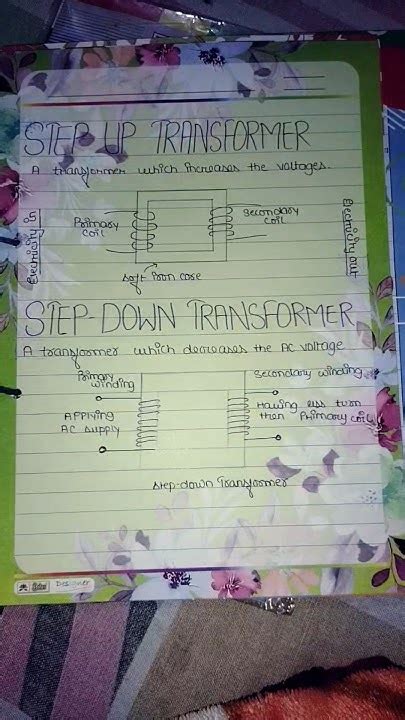 STEP UP TRANSFORMER
A transformer which increases the voltages.
Electricity in
Primary
coil
Secondary
coil
Electricity out
soft iron core
STEP-DOWN TRANSFORMER
A transformer which decreases the AC voltage
Primary
winding
Secondary winding
APPLYING
AC SUPPLY
Having less turn
then Primary coil
step-down Transformer
Designer